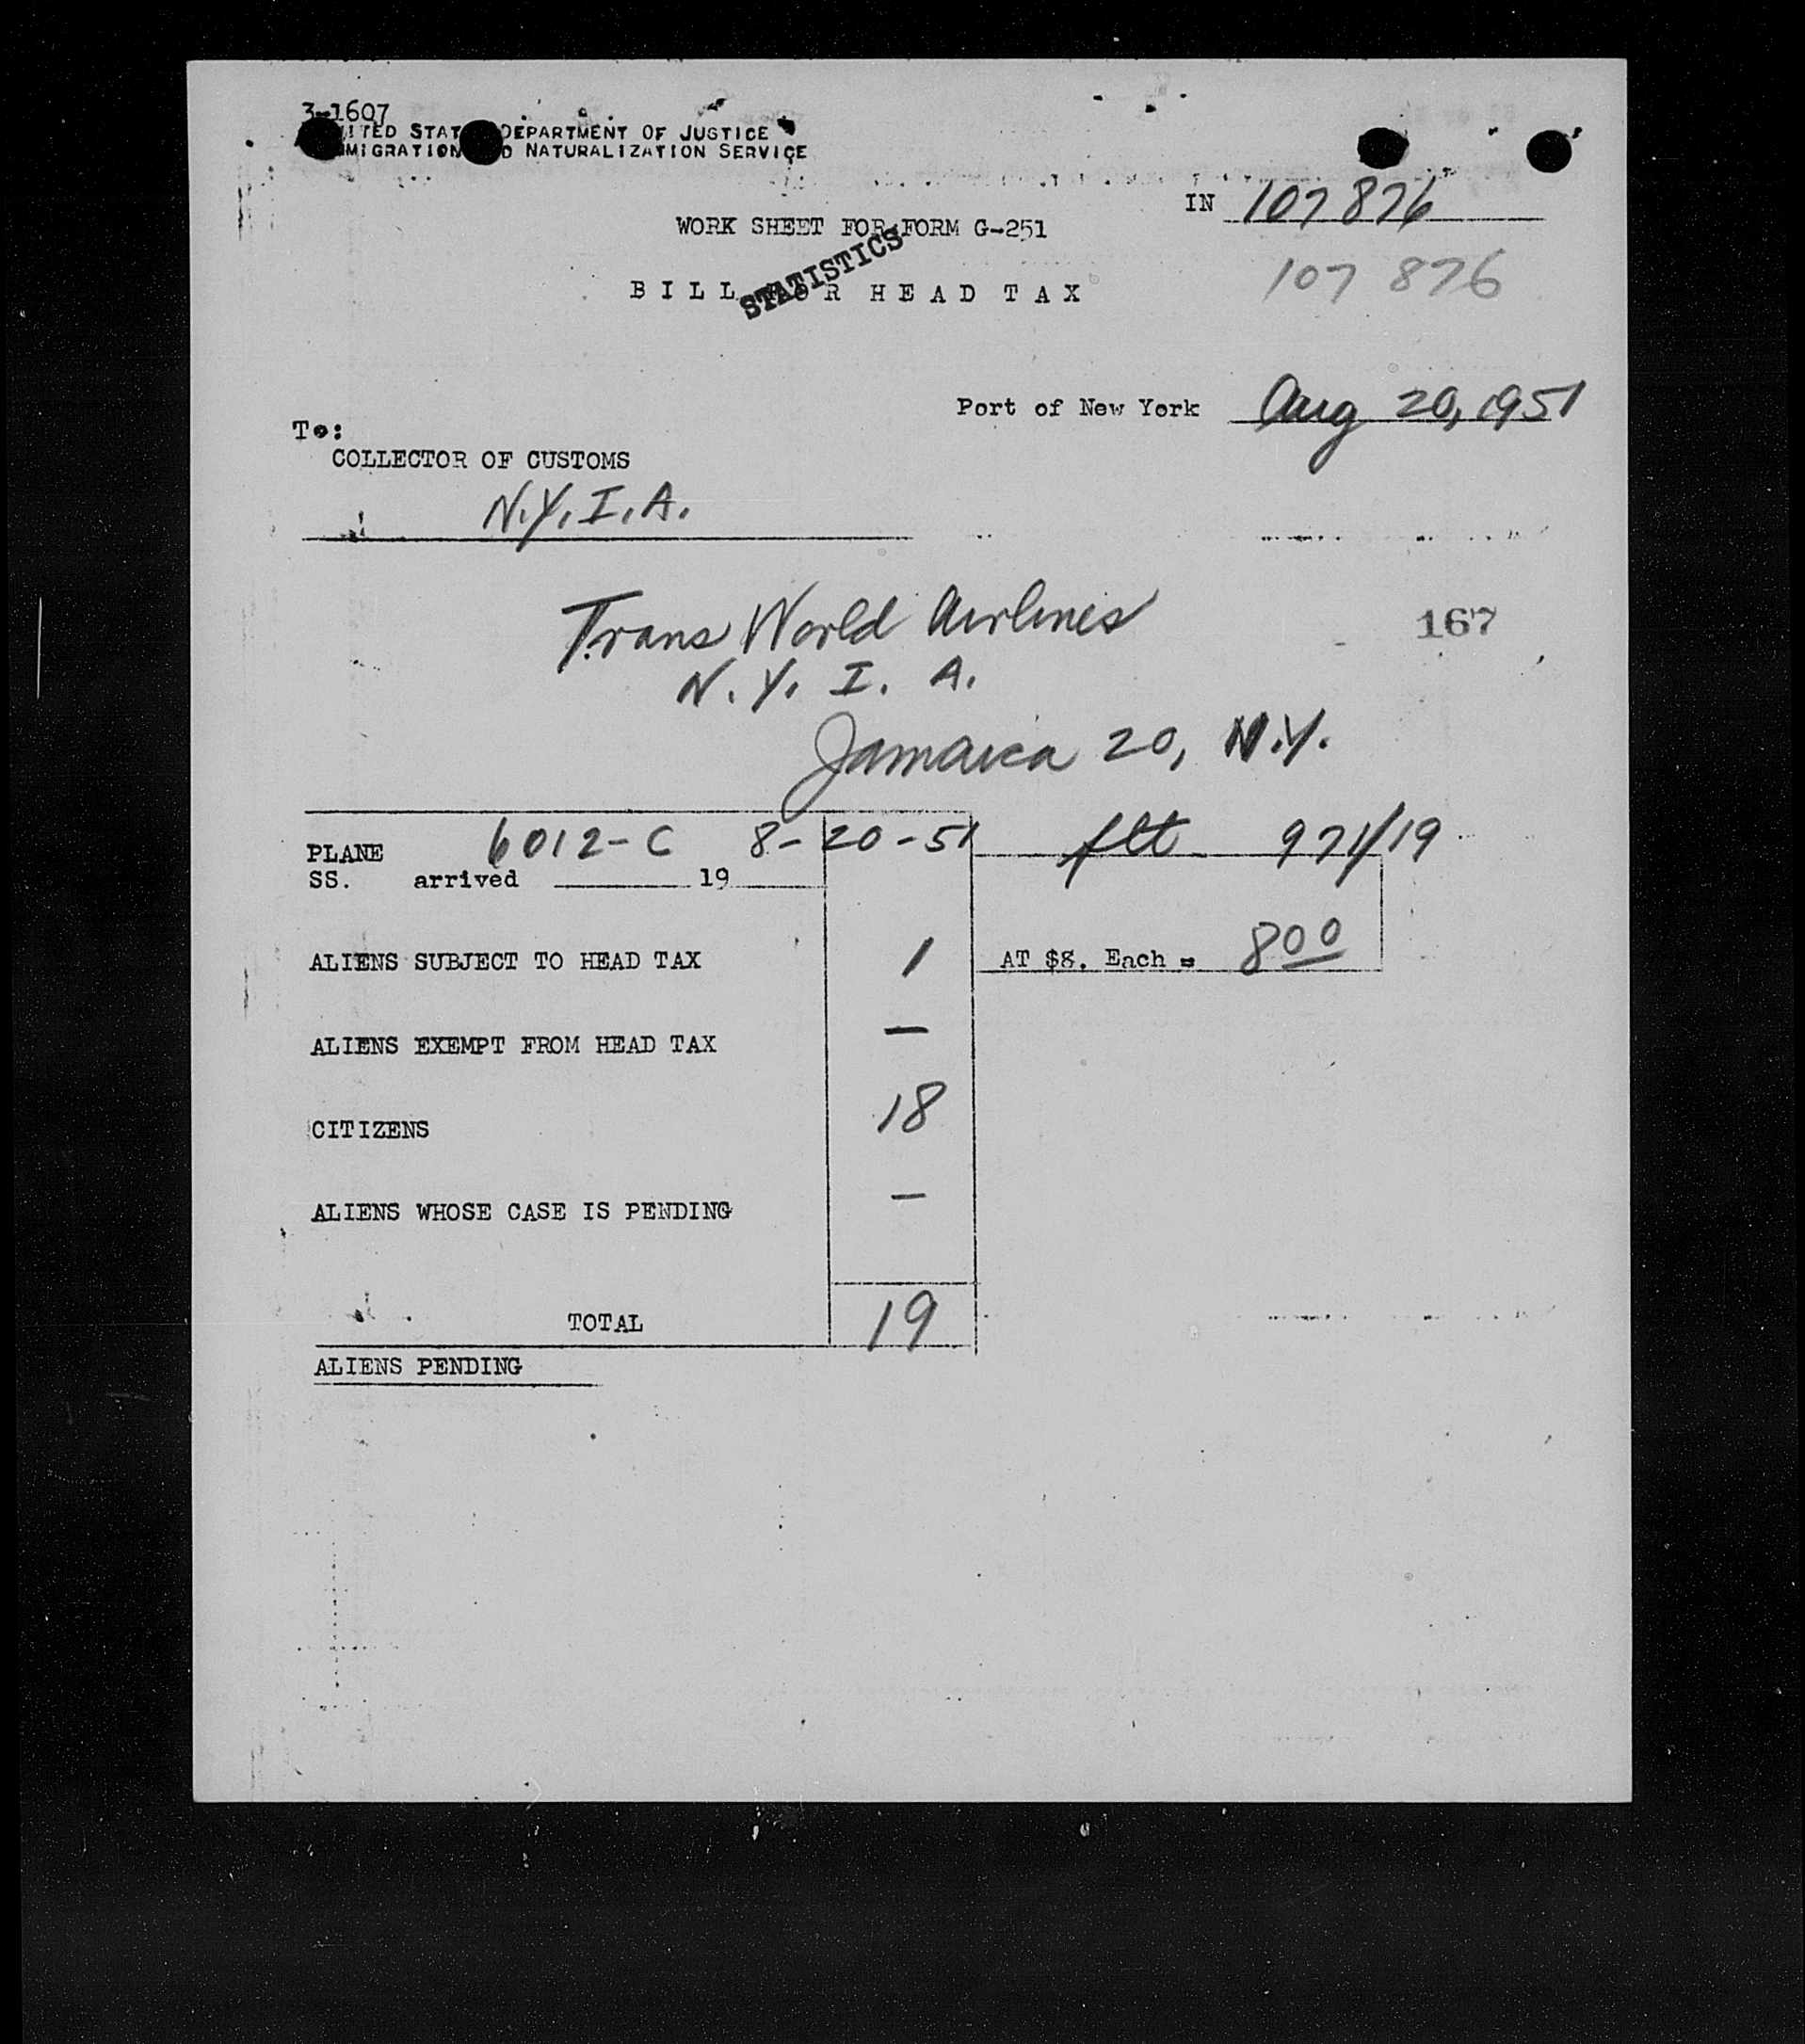 3-1607
UNITED STATES DEPARTMENT OF JUSTICE
IMMIGRATION AND NATURALIZATION SERVICE
IN 107876
WORK SHEET FOR FORM G-251
STATISTICS
107 876
BILL FOR HEAD TAX
Port of New York Aug 20, 1951
To:
COLLECTOR OF CUSTOMS
N.Y.I.A.
Trans World Airlines
167
N.Y.I.A.
Jamaica 20, N.Y.
6012-C 8-20-51 flt 971/19
PLANE
SS. arrived 19
ALIENS SUBJECT TO HEAD TAX 1 AT $8. Each = 8 00
ALIENS EXEMPT FROM HEAD TAX —
CITIZENS 18
ALIENS WHOSE CASE IS PENDING —
TOTAL 19
ALIENS PENDING